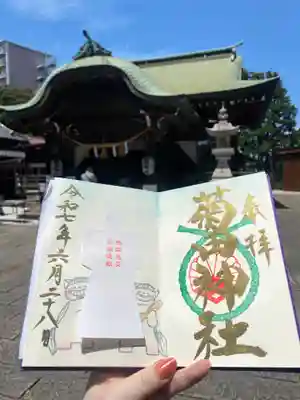 奉拝
菊田神社
令和七年六月二十八日